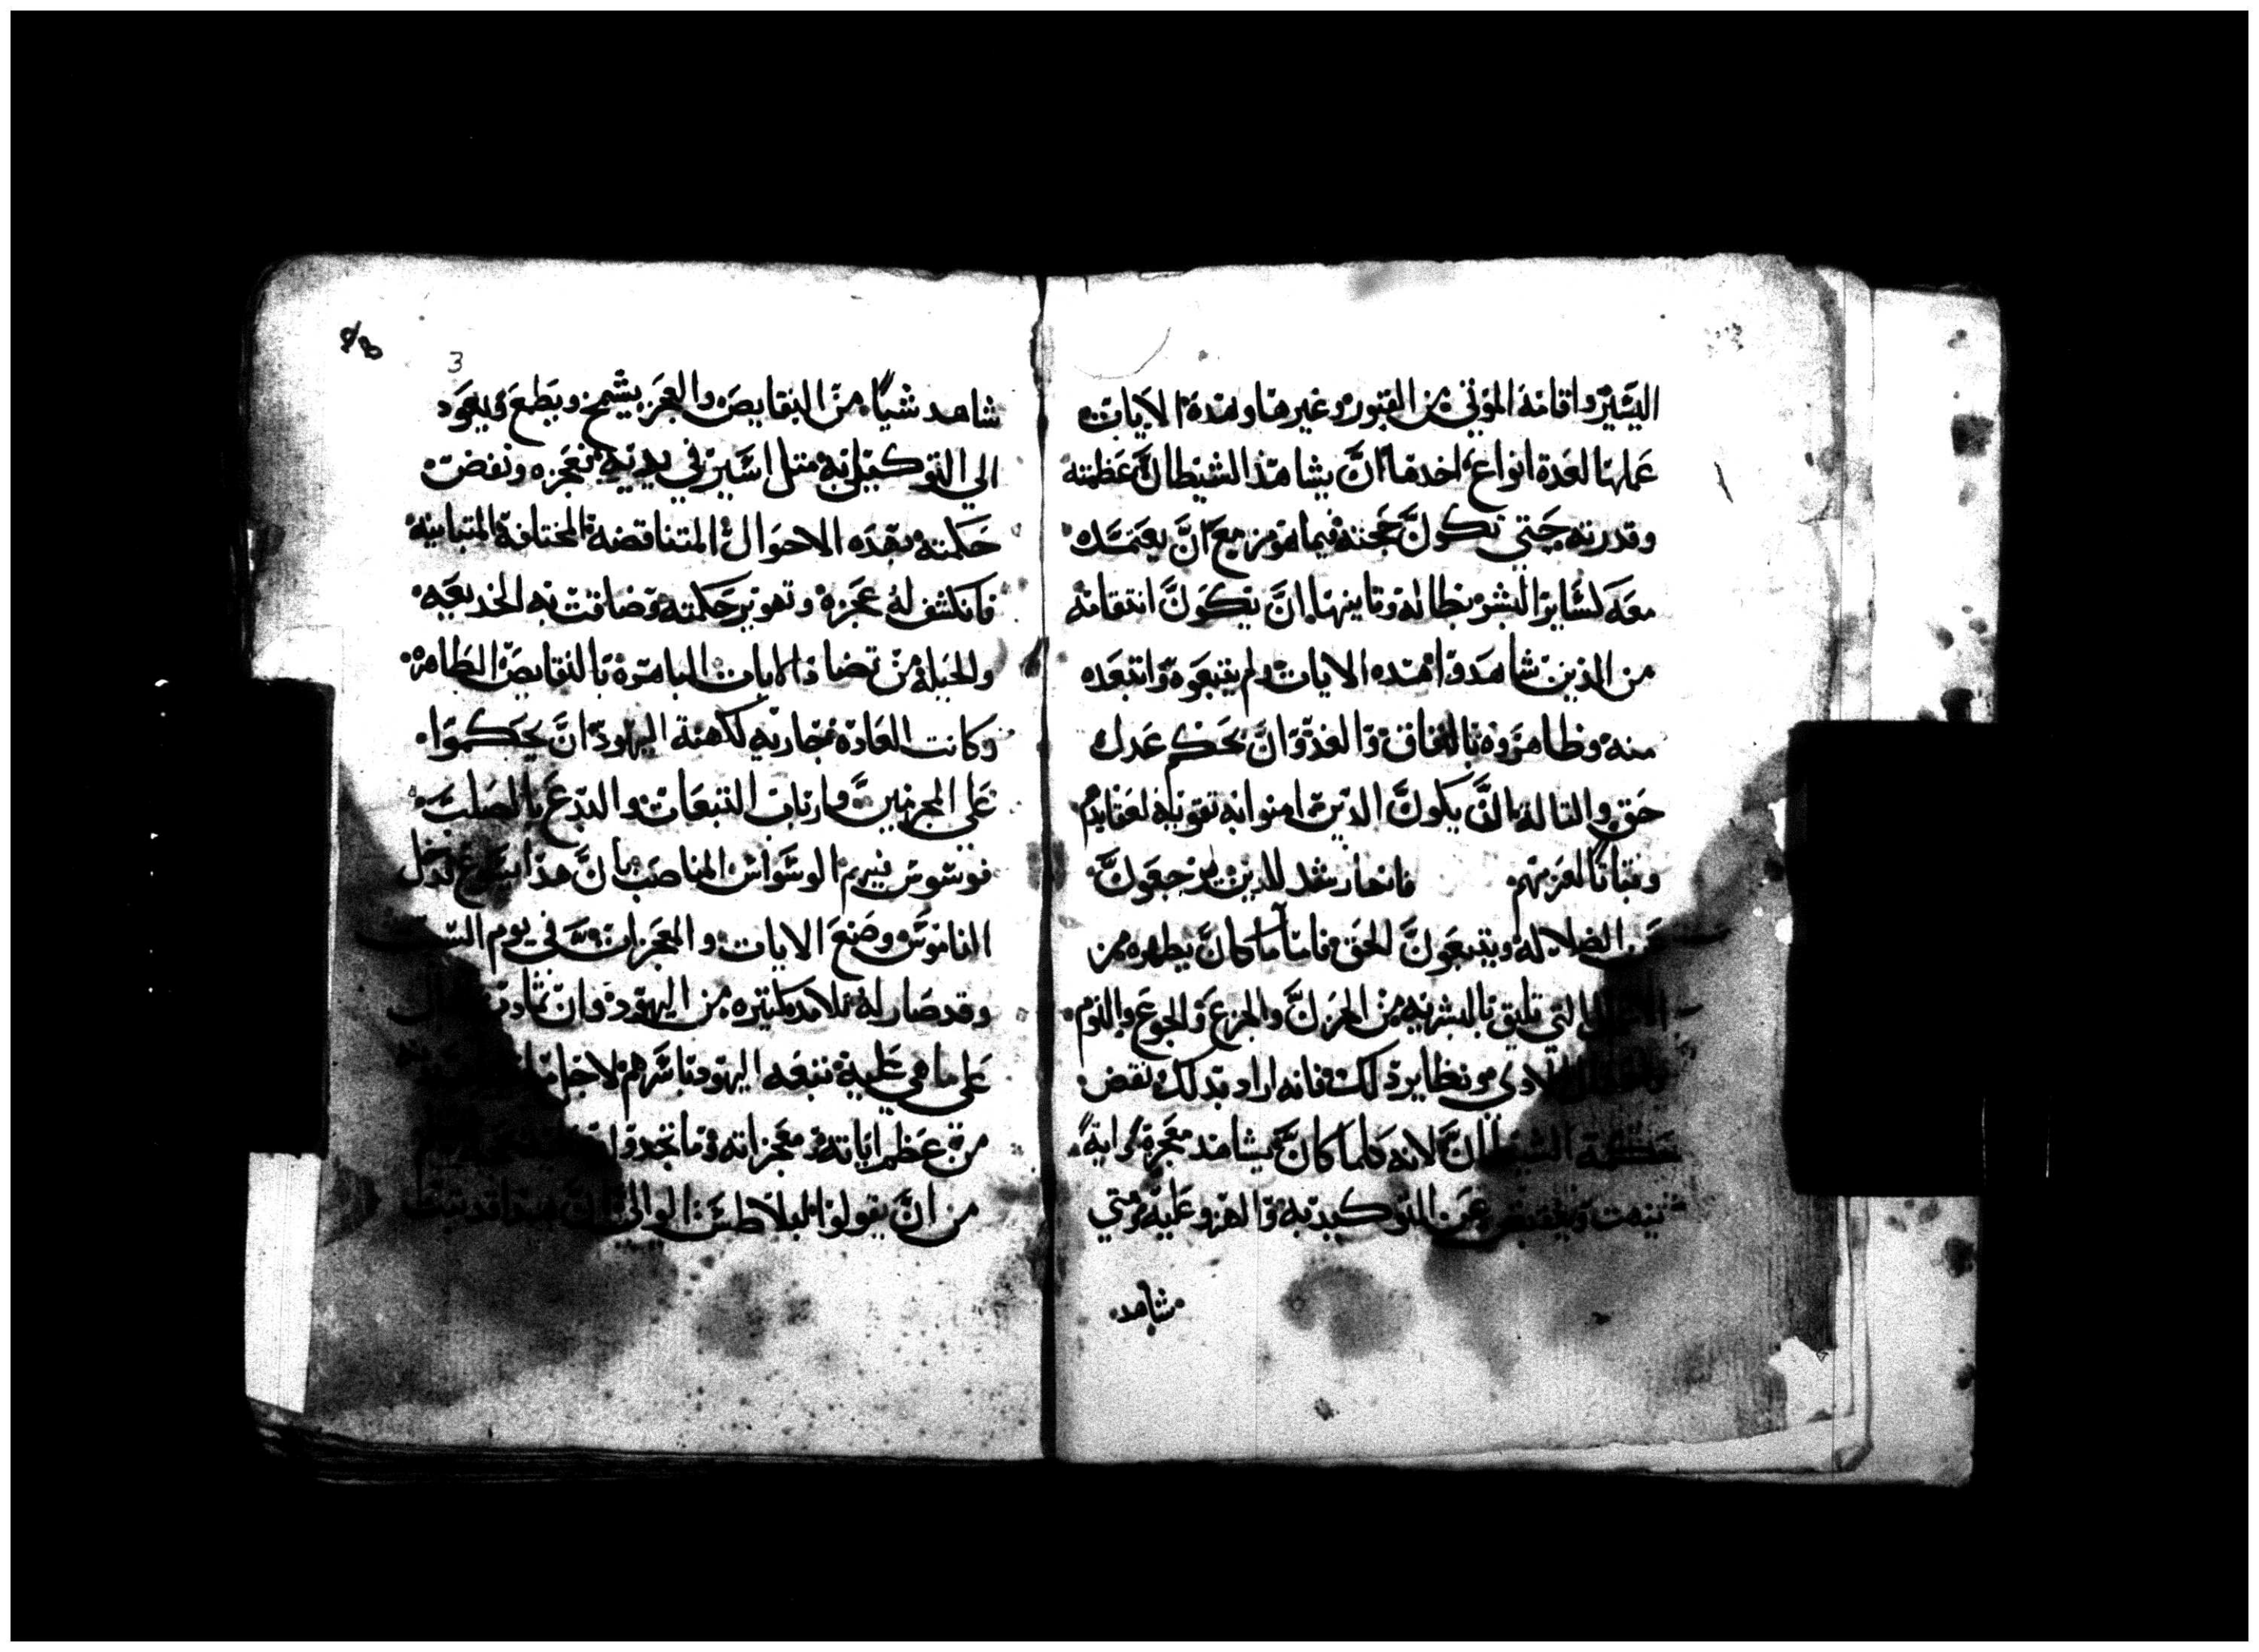 اليسير واقامة الموتي من القبور وغيرها وهذة الايات
عملها لعدة انواع احدها ان يشاهد الشيطان عظمته
وقدرته حتي تكون حجته فيما هو مزمع ان يعتمده
معه لساير البشر بطاله وثانيها ان يكون انتقامه
من الذين شاهدوا هذه الايات ولم يتبعوه وابتعدو
منه وظاهروه بالنفاق والغدر وان بحكم عدل
حق والثالثة ان يكون الذين امنوا به تقويه لعقايدهم
وثباتا لعزمهم فانها رشد للذين يرجعون
عن الضلالة ويتبعون الحق فاما ما كان يظهره من
التي تليق بالبشريه من الحزن والجزع والجوع والنوم
ونظاير ذلك فانه اراد بذلك نقض
حكمة الشيطان لانه كلما كان يشاهد معجزة واية
يبهت عن التوكيد به والهزو عليه ومتي
شاهد
3
شاهد شيا من النقايص والعجز يشمخ ويطمع ويعود
الي التوكيل به مثل اسير في يديه فعجزه ونقضت
حكمته بهذه الاحوال المتناقضه المختلفة المتباينه
فانكشف له عجزه وتهوير حكمته وضاقت به الخديعه
والحيلة من تضاد الايات الباهرة بالنقايص الظاهره
وكانت العادة جاريه لكهنة اليهود ان يحكموا
علي المجرمين وارباب التبعات والبدع بالصلب
فوسوس فيهم الوسواس المناصب بان هذا يسوع قد حل
الناموس وصنع الايات والمعجزات في يوم السبت
وقد صار له تلامد كثيره من اليهود وان تمادت
علي ما هي عليه تتبعه اليهود باسرهم لاجل
من عظم اياته ومعجزاته وما تجدوا
من ان يقولوا لبيلاطس الوالي ان هذا قد ثبت